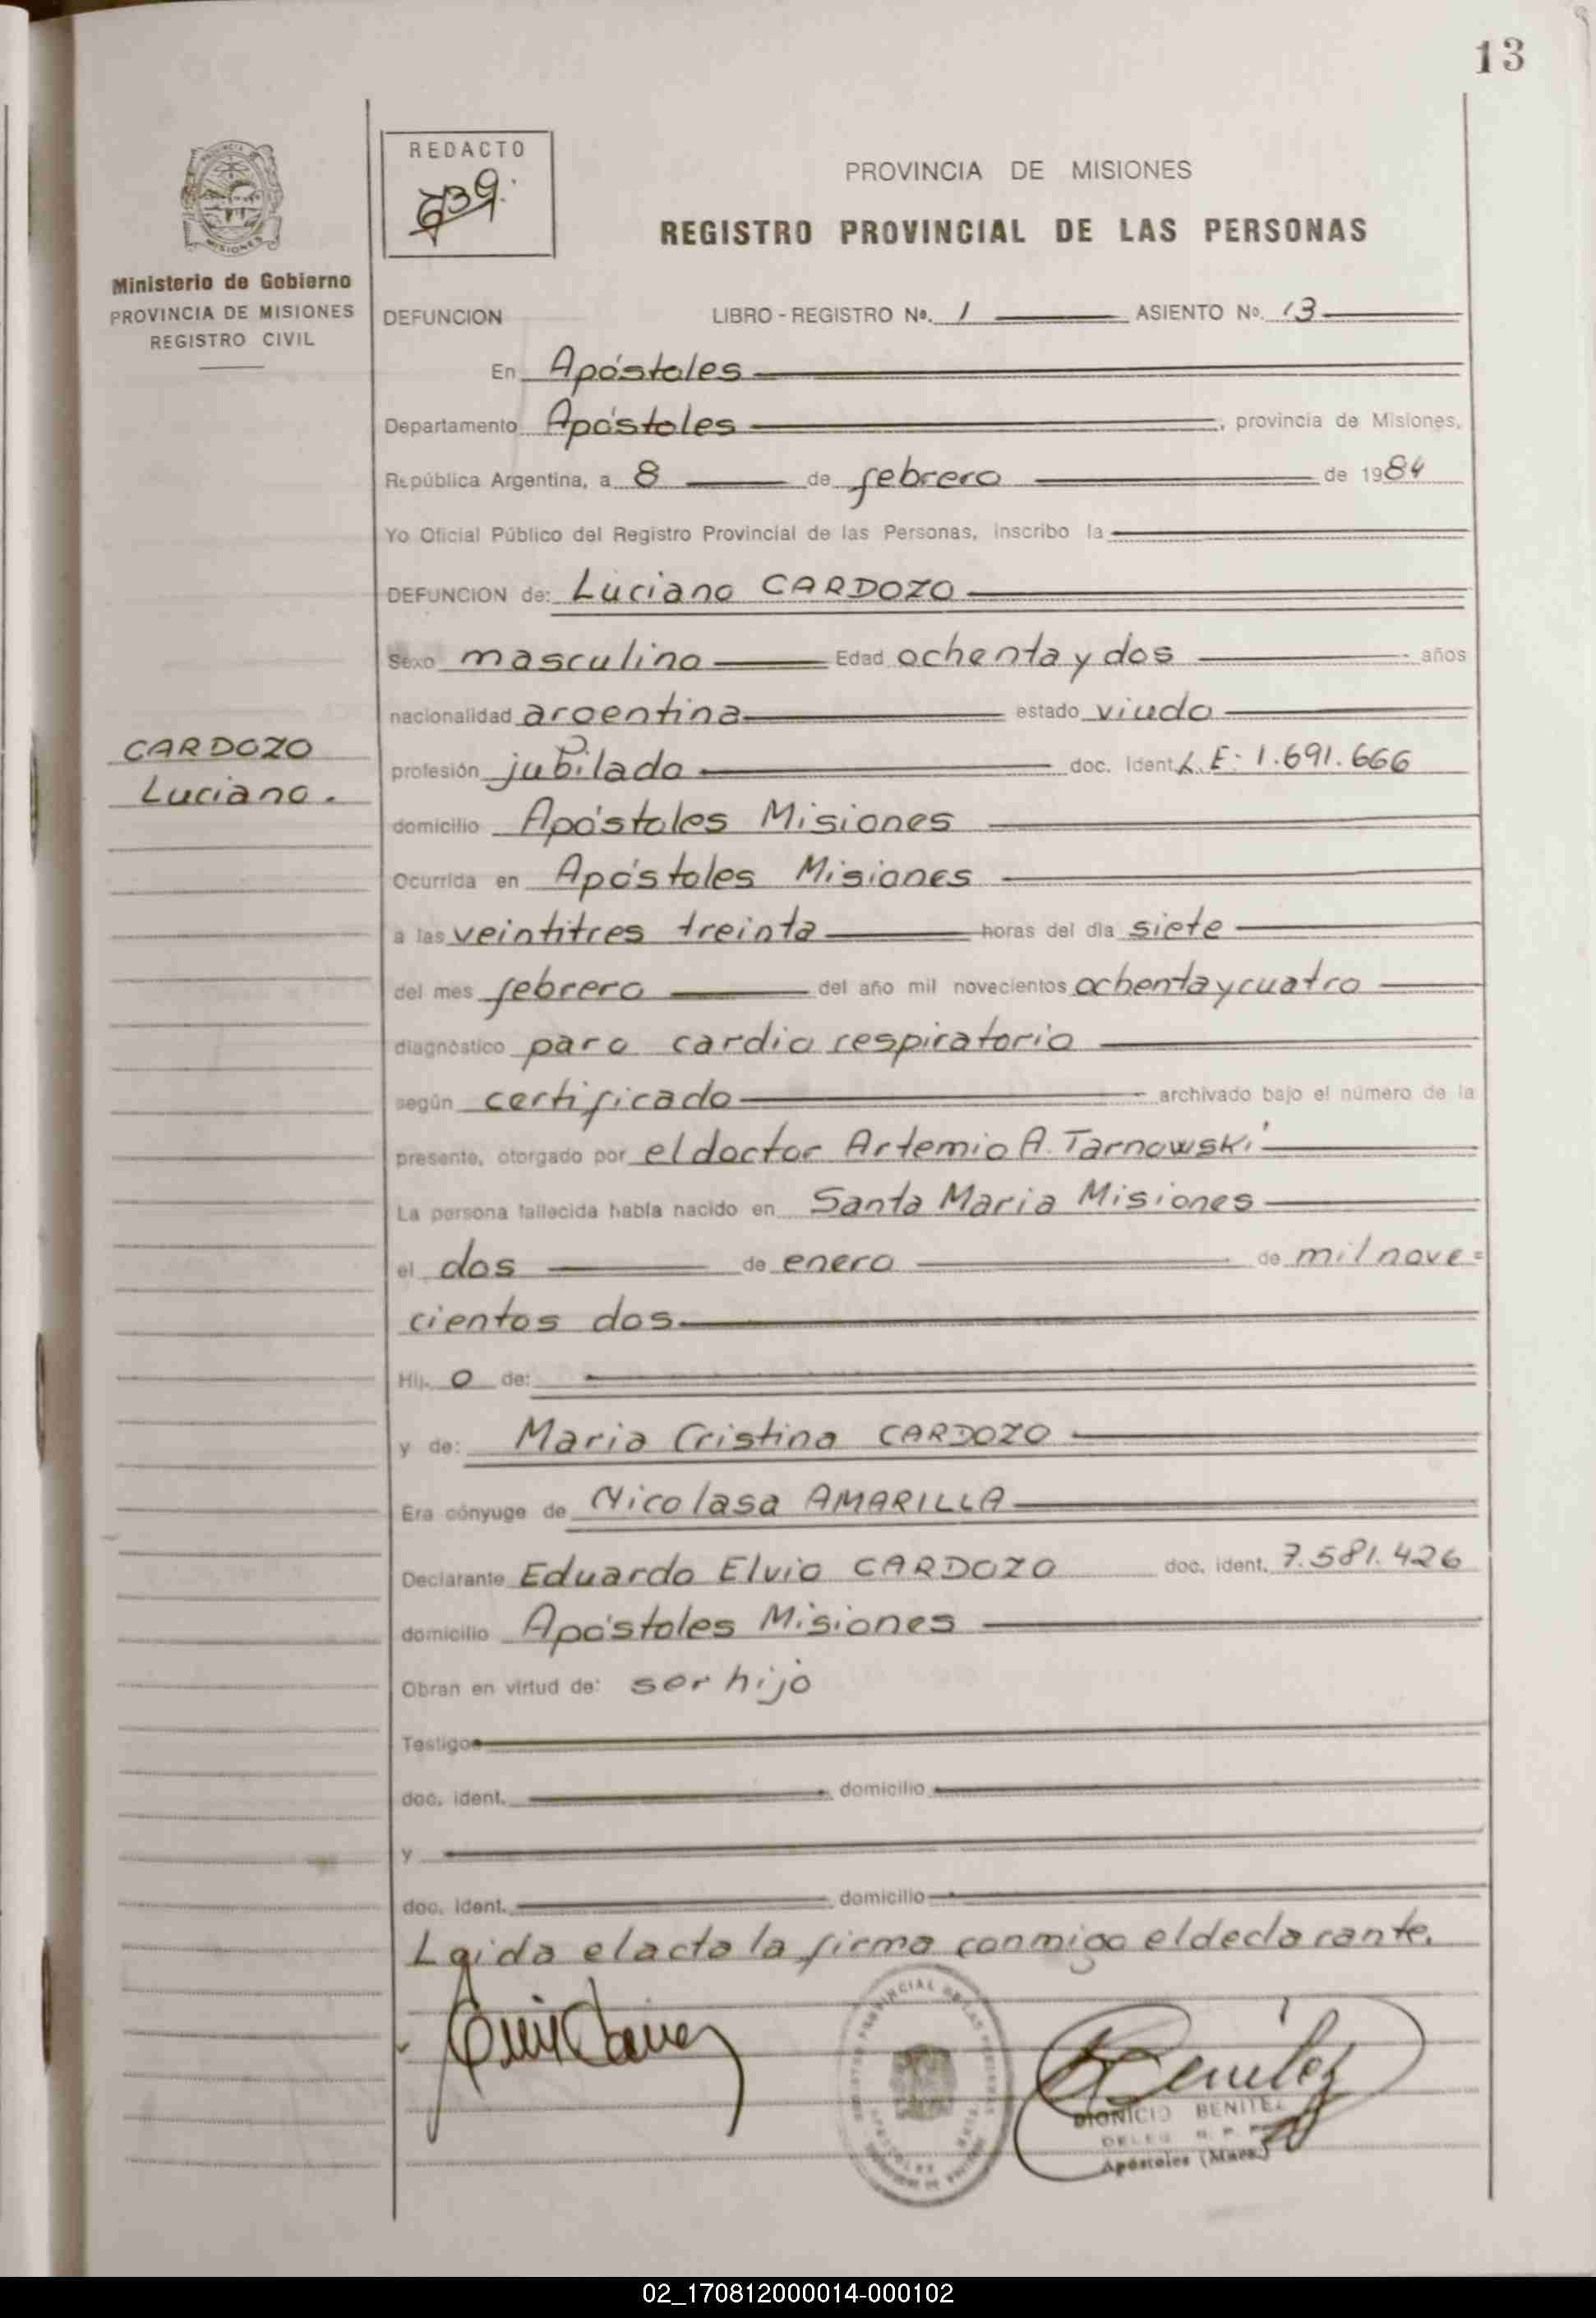 13
REDACTO
Ministerio de Gobierno
PROVINCIA DE MISIONES
REGISTRO CIVIL
PROVINCIA DE MISIONES
REGISTRO PROVINCIAL DE LAS PERSONAS
DEFUNCION LIBRO - REGISTRO Nº. 1 ASIENTO Nº. 13
En Apóstoles
Departamento Apóstoles, provincia de Misiones,
República Argentina, a 8 de febrero de 1984
Yo Oficial Público del Registro Provincial de las Personas, inscribo la
DEFUNCION de: Luciano CARDOZO
Sexo masculino Edad ochenta y dos años
nacionalidad argentina estado viudo
CARDOZO
Luciano.
profesión jubilado doc. ident. L.E: 1.691.666
domicilio Apóstoles Misiones
Ocurrida en Apóstoles Misiones
a las veintitres treinta horas del día siete
del mes febrero del año mil novecientos ochenta y cuatro
diagnóstico paro cardio respiratorio
según certificado archivado bajo el número de la
presente, otorgado por el doctor Artemio A. Tarnowski
La persona fallecida había nacido en Santa Maria Misiones
el dos de enero de mil nove=
cientos dos
Hij o de:
y de: Maria Cristina CARDOZO
Era cónyuge de Nicolasa AMARILLA
Declarante Eduardo Elvio CARDOZO doc. ident. 7.581.426
domicilio Apóstoles Misiones
Obran en virtud de: ser hijo
Testigos
doc. ident. domicilio
y
doc. ident. domicilio
Leida el acta la firma conmigo el declarante.
DIONICIO BENITEZ
Apóstoles (Mnes.)
02_170812000014-000102